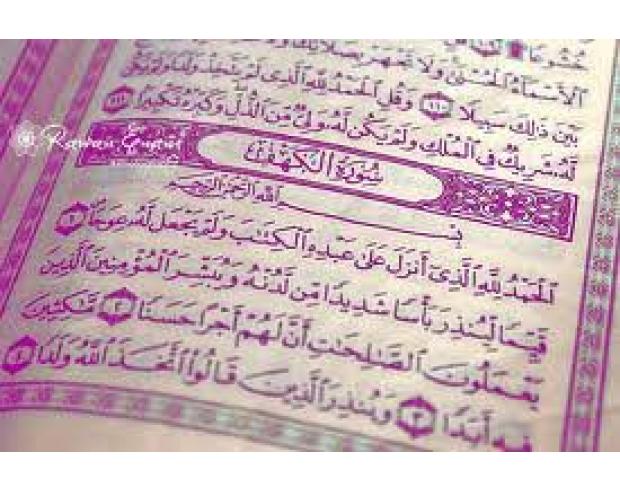 خُشُوعًا
الْأَسْمَاءُ الْحُسْنَىٰ وَلَا تَجْهَرْ بِصَلَاتِكَ
بَيْنَ ذَٰلِكَ سَبِيلًا ١١٠ وَقُلِ الْحَمْدُ لِلَّهِ الَّذِي لَمْ يَتَّخِذْ وَلَدًا وَلَمْ يَكُن
لَّهُ شَرِيكٌ فِي الْمُلْكِ وَلَمْ يَكُن لَّهُ وَلِيٌّ مِّنَ الذُّلِّ وَكَبِّرْهُ تَكْبِيرًا ١١١
Rawan
سُورَةُ الْكَهْفِ
بِسْمِ اللَّهِ الرَّحْمَٰنِ الرَّحِيمِ
الْحَمْدُ لِلَّهِ الَّذِي أَنزَلَ عَلَىٰ عَبْدِهِ الْكِتَابَ وَلَمْ يَجْعَل لَّهُ عِوَجًا ١
قَيِّمًا لِّيُنذِرَ بَأْسًا شَدِيدًا مِّن لَّدُنْهُ وَيُبَشِّرَ الْمُؤْمِنِينَ الَّذِينَ
يَعْمَلُونَ الصَّالِحَاتِ أَنَّ لَهُمْ أَجْرًا حَسَنًا ٢ مَّاكِثِينَ
فِيهِ أَبَدًا ٣ وَيُنذِرَ الَّذِينَ قَالُوا اتَّخَذَ اللَّهُ وَلَدًا ٤